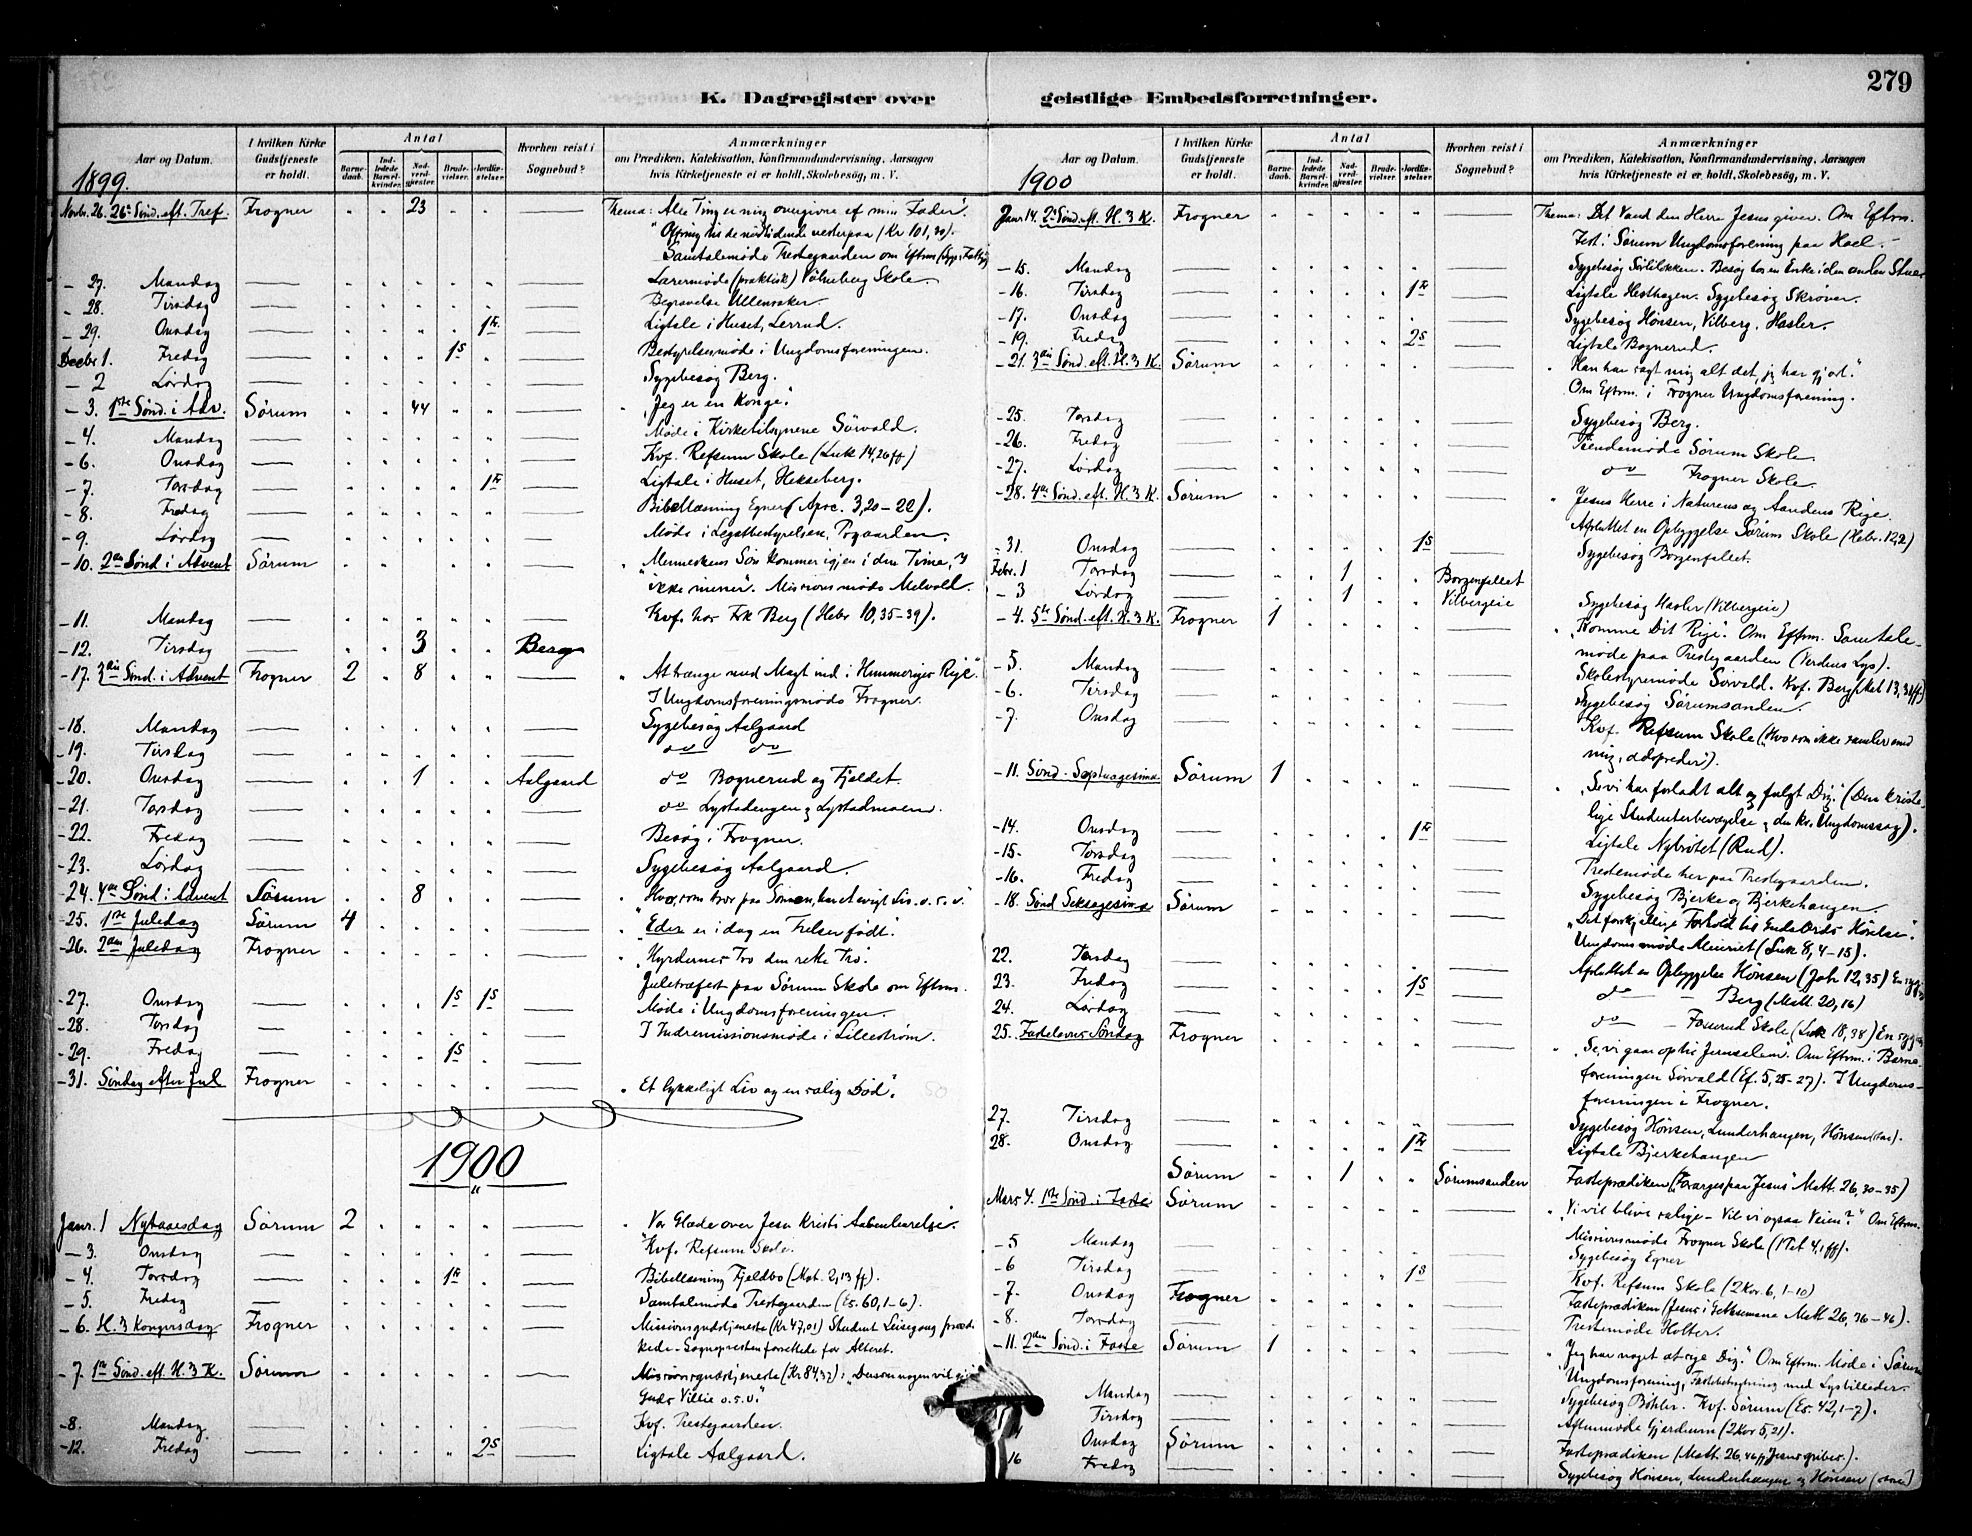 279
K. Dagregister over geistlige Embedsforretninger.
Aar og Datum. I hvilken Kirke Gudstjeneste er holdt. Antal Barnedaab. Indledede Barselkvinder. Nadverdgjester. Brudevielser. Jordfæstelser. Hvorhen reist i Sognebud? Anmærkninger om Prædiken, Katekisation, Konfirmandundervisning, Aarsagen hvis Kirketjeneste ei er holdt, Skolebesøg, m. V.
1899.
Novbr. 26. 26de Sønd. eft. Tref. Frogner 23 Thema: Alle Ting er mig overgivne af min Fader".
Ofring til de nødlidende vesterpaa (Kr 101,30).
Samtalemøde Prestegaarden om Eftm
- 27. Mandag Lærermøde (praktisk) Vølneberg Skole.
- 28. Tirsdag Begravelse Ullensaker.
- 29. Onsdag 1 Ligtale i Huset, Lerrud.
Decbr 1. Fredag 1S Bestyrelsesmøde i Ungdomsforeningen.
- 2 Lørdag Sygebesøg Berg.
- 3. 1ste Sønd. i Adv. Sørum 44 "Jeg er en Konge".
- 4. Mandag Møde i Kirketilsynene Sørvald.
- 6. Onsdag Kvf. Refsum Skole (Luk 14,26ff)
- 7. Torsdag 1 Ligtale i Huset, Hekseberg.
- 8. Fredag Bibellæsning Egner (Apoc. 3,20-22).
- 9. Lørdag Møde i Legatbestyrelsen, Prgaarden.
- 10. 2den Sønd i Advent Sørum "Menneskens Søn kommer igjen i den Time, I
ikke mener". Missionsmøde Melvold.
- 11. Mandag Kvf. hos Frk Berg (Hebr 10,35-39).
- 12. Tirsdag 3 Berg
- 17. 3die Sønd. i Advent Frogner 2 8 "At trænge med Magt ind i Himmeriges Rige".
I Ungdomsforeningsmøde Frogner.
- 18. Mandag Sygebesøg Aalgaard
- 19. Tirsdag do do
- 20. Onsdag 1 Aalgaard do Bognerud og Fjeldet.
- 21. Torsdag do Lystadengen & Lystadmoen.
- 22. Fredag Besøg i Frogner.
- 23. Lørdag Sygebesøg Aalgaard.
- 24. 4de Sønd i Advent Sørum 8 "Hvo, som tror paa Sønnen, har et evigt Liv. o. s. v."
- 25. 1ste Juledag Sørum 4 "Eder er i dag en Frelser født".
- 26. 2den Juledag Frogner "Hyrdernes Tro den rette Tro".
Juletræfest paa Sørum Skole om Eftm.
- 27. Onsdag 1S 1S Møde i Ungdomsforeningen.
- 28. Torsdag I Indremissionsmøde i Lillestrøm.
- 29. Fredag 1S
- 31. Søndag efter Jul Frogner "Et lykkeligt Liv og en salig Død".
1900
Janr. 1 Nytaarsdag Sørum 2 "Vor Glæde over Jesu Kristi Aabenbarelse".
- 3. Onsdag Kvf. Refsum Skole.
- 4. Torsdag 1 Bibellæsning Fjeldbo (Mat. 2,13 ff).
- 5. Fredag Samtalemøde Prestegaarden (Es. 60,1-6).
- 6. H. 3 Kongersdag Frogner Missionsgudstjeneste (Kr 47,01) Student Leisegang præd-
kede - Sognepresten forrettede for Alteret.
- 7. 1ste Sønd. eft. H. 3 K. Sørum Missionsgudstjeneste (Kr 84,32): "Dersom nogen vil gjøre
Guds Villie o.s.v."
- 8. Mandag. Kvf. Prestegaarden.
- 12. Fredag 2S Ligtale Aalgaard.
1900
Janr 14. 2den Sønd. eft. H. 3 K. Frogner Thema: Det Vand den Herre Jesus giver. Om Eftm.
Fest i Sørum Ungdomsforening paa Hael.
- 15. Mandag Sygebesøg Sørlibakken. Besøg hos en Enke i den anden Stue.
- 16. Tirsdag 1 Ligtale Hesthagen. Sygebesøg Skrøver.
- 17. Onsdag Sygebesøg Hønsen, Vilberg, Hasler.
- 19. Fredag 2S Ligtale Bognerud.
- 21. 3die Sønd. eft. H. 3 K. Sørum "Han har sagt mig alt det, jeg har gjort."
Om Eftm. i Frogner Ungdomsforening.
- 25. Torsdag Sygebesøg Berg.
- 26. Fredag Tiendemøde Sørum Skole
- 27. Lørdag do Frogner Skole.
- 28. 4de Sønd. eft. H. 3 K. Sørum "Jesus Herre i Naturens og Aandens Rige.
Afsluttet en Opbyggelse Sørum Skole (Hebr. 12,2)
- 31. Onsdag 1S Sygebesøg Borgenfallet.
Febr. 1 Torsdag 1 Borgenfallet
- 3 Lørdag 1 Vilbergeie Sygebesøg Hasler (Vilbergeie)
- 4. 5te Sønd. eft. H. 3 K. Frogner 1 "Komme Dit Rige". Om Eftm. Samtale-
møde paa Prestegaarden (Verdens Lys).
- 5. Mandag Skolestyremøde Sørvald. Kvf. Berg
- 6. Tirsdag Sygebesøg Sørumsanden.
- 7. Onsdag Kvf. Refsum Skole (Hvo som ikke samler med
mig, adspreder").
- 11. Sønd. Septuagesima Sørum 1 "Se vi har forladt alt og fulgt Dig." (Den kriste-
lige Studenterbevægelse & den kr. Ungdomssag).
- 14. Onsdag 1 Ligtale Nybrotet (Rud).
- 15. Torsdag Prestemøde her paa Prestegaarden.
- 16. Fredag Sygebesøg Bjerke og Bjerkehangen.
- 18. Sønd Seksagesima Sørum "Det forskjellige Forhold til Guds Ords Hørelse".
Ungdomsmøde Meieriet (Luk 8, 4-15).
22. Torsdag Afsluttet en Opbyggelse Hønsen (Joh 12,35)
23. Fredag 1S do - Berg (Matt 20,16)
24. Lørdag do - Fossrud Skole (Luk 18,38)
25. Fastelavns Søndag Frogner "Se, vi gaar op til Jerusalem". Om Eftm. i Barne-
foreningen Sørvald (Ef. 5,25-27). I Ungdoms-
foreningen i Frogner.
27. Tirsdag Sygebesøg Hønsen, Lunderhaugen, Hønsen
28. Onsdag 1 Ligtale Bjerkehaugen
Sørum 1 Sørumsanden Fasteprædiken ("Forarges paa Jesus" Matt. 26,30-35)
Mars 4. 1ste Sønd. i Faste Sørum "Vi vil blive salige - Vil vi ogsaa Veien?" Om Eftm.
Missionsmøde Frogner Skole (1 Pet 4,1ff).
- 5 Mandag Sygebesøg Egner
- 6 Tirsdag 1S Kvf. Refsum Skole (2 Kor. 6, 1-10)
- 7. Onsdag Frogner Fasteprædiken (Jesus i Getsemane Matt 26, 36-46).
- 8. Torsdag Prestemøde Holter.
- 11. 2den Sønd. i Faste Sørum 1 "Jeg har noget at sige Dig." Om Eftm. Møde i Sørum
Ungdomsforening, Fastebetragtning med Lysbilleder.
Mandag Sygebesøg Bøhler. Kvf. Sørum (Es. 42, 1-7).
Tirsdag Aftenmøde Gjerdrum (2 Kor 5,21).
Onsdag Sørum Fasteprædiken (Matt. 26,46ff
16 Fredag Sygebesøg Hønsen, Lunderhaugen & Hønsen